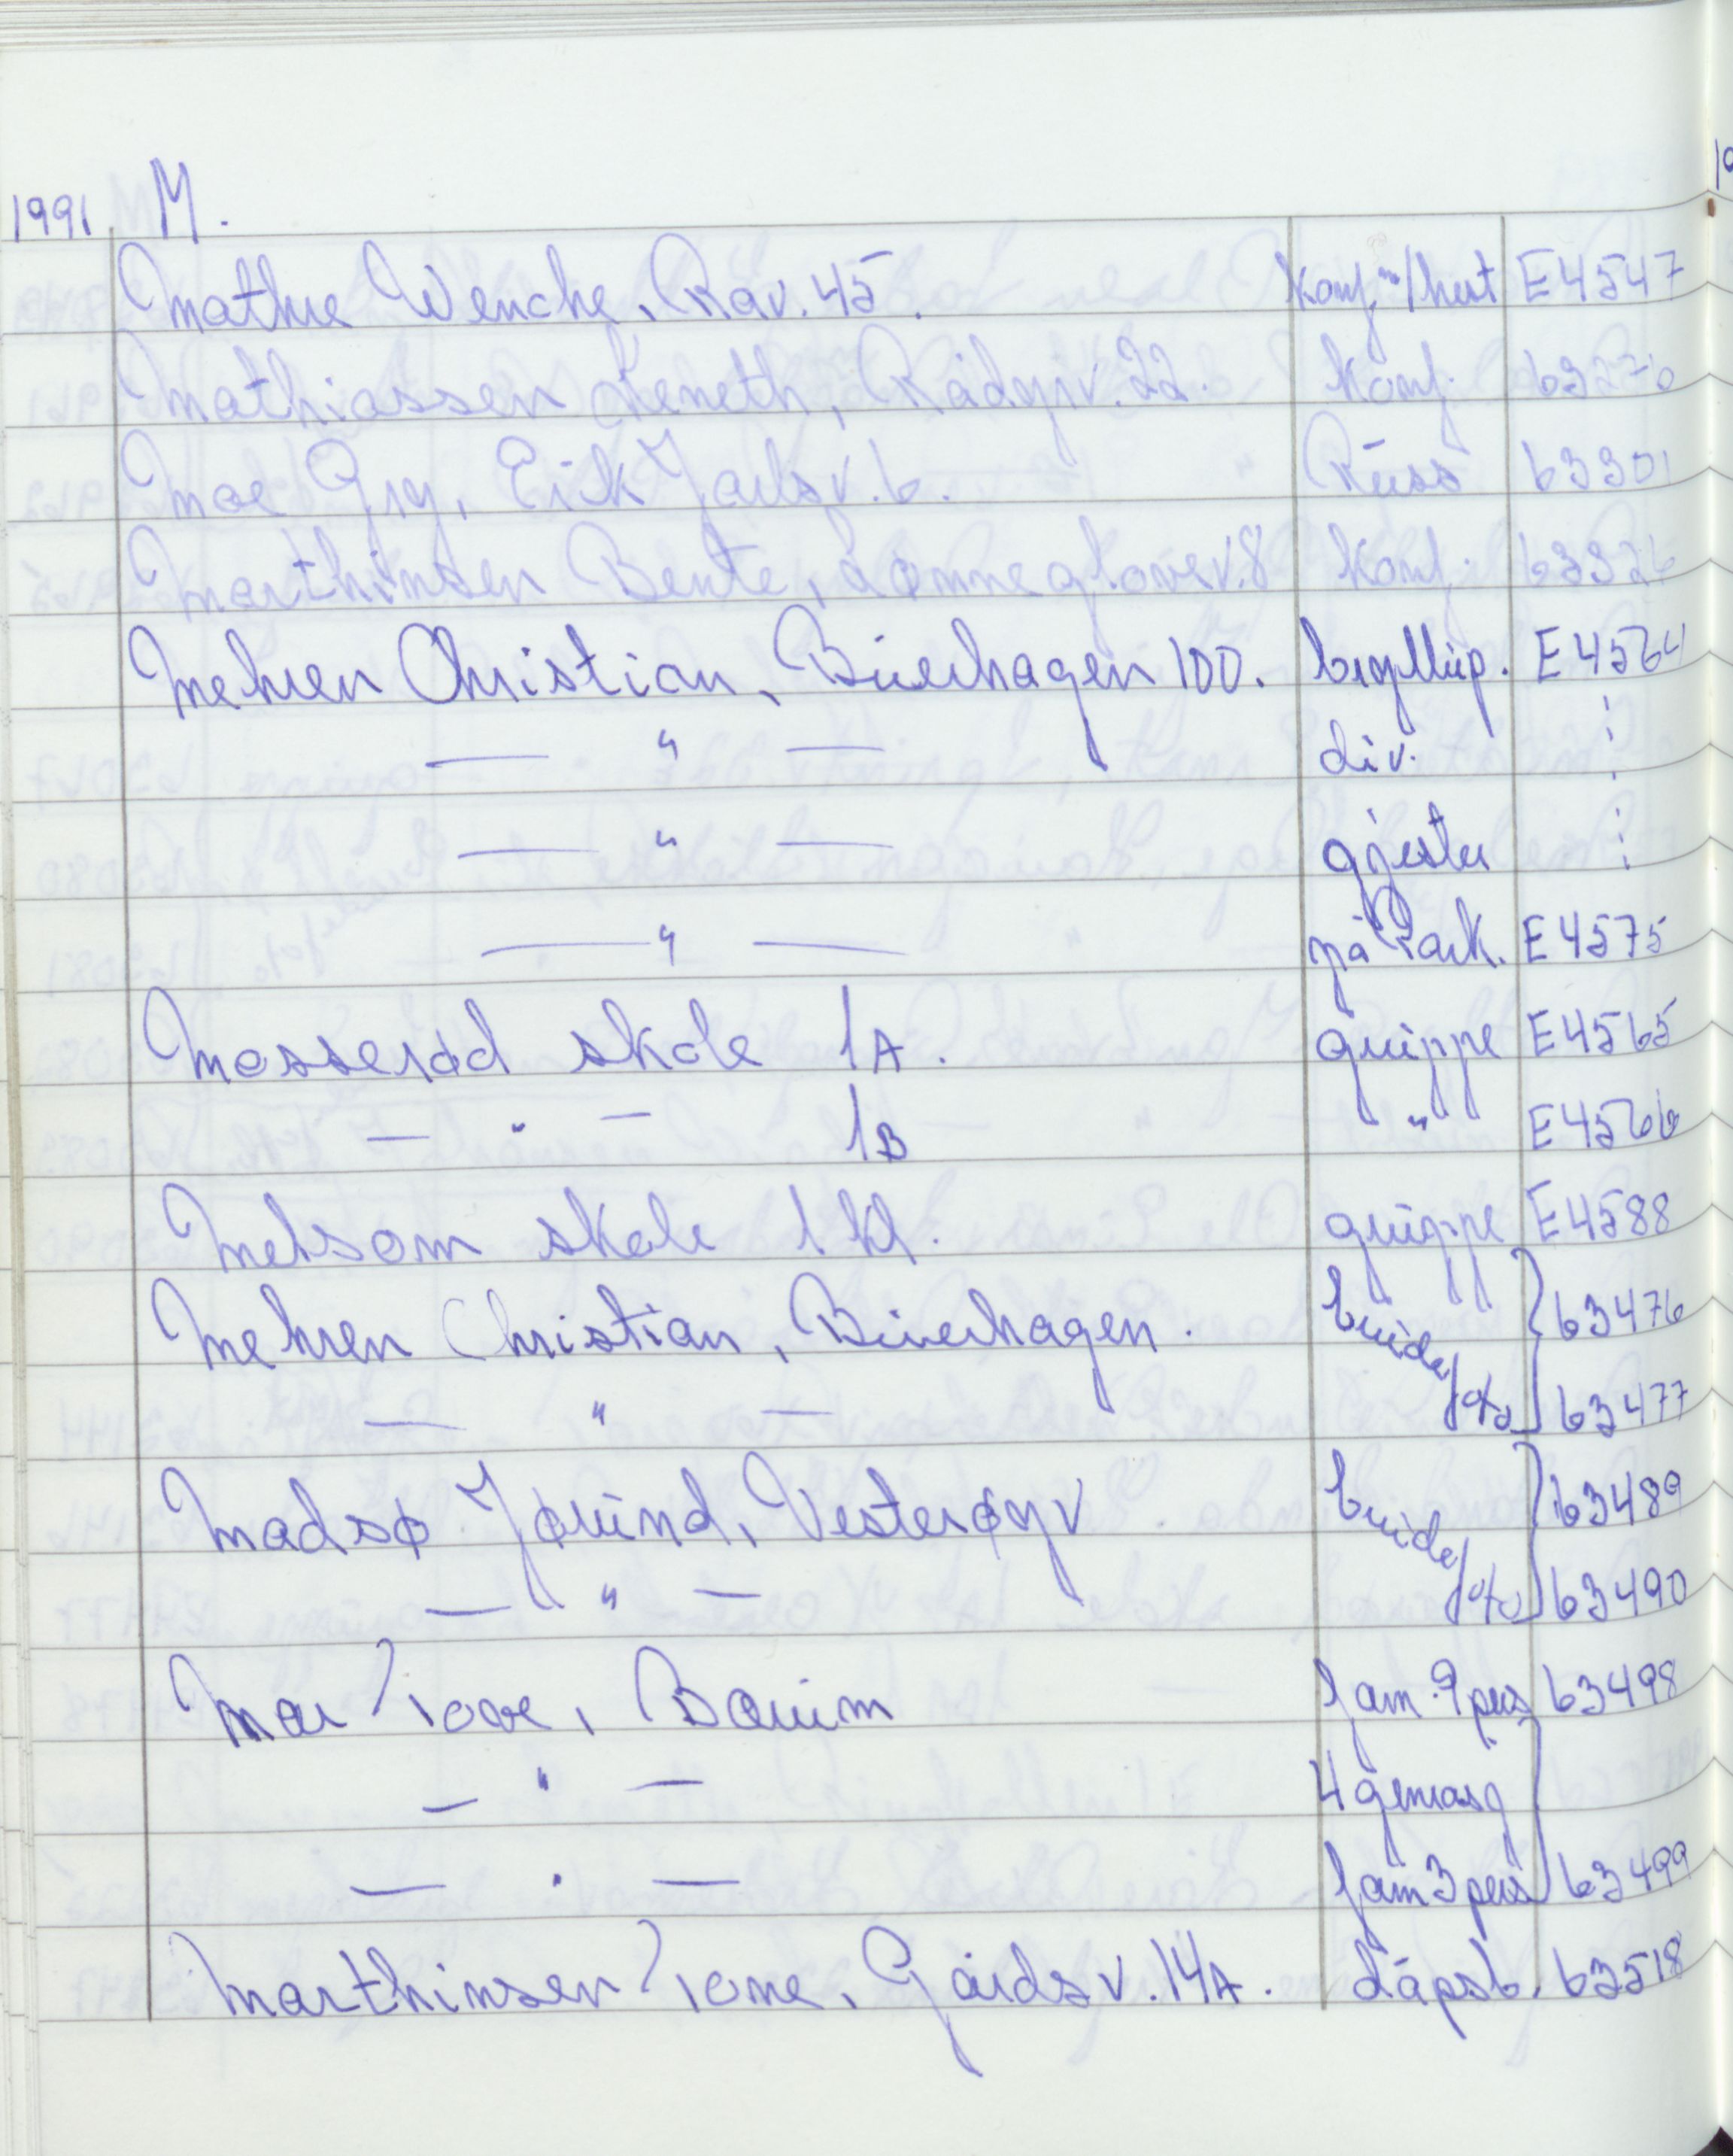 1991 M.
Mathre Wenche, Rav. 45. konf. m/hest E4547
Mathiassen Keneth, Rådyrv. 22. konf. 63270
Moe Gry, Eirik Jarlsv. 6. Russ 63301
Marthinsen Bente, Lønneglovev. 8 konf. 63326
Mehren Christian, Buerhagen 100. bryllup. E4564
— " — div.
— " — gjester
— " — på Park. E4575
Mosserød skole 1A. gruppe E4565
— " — 1B " E4566
Melsom skole 1 kl. gruppe E4588
Mehren Christian, Buerhagen. brude/ 63476
— " — 63477
Madsø Jørund, Vesterøyv brude/ 63489
— " — 63490
Tove, Borium fam. 9 pers 63498
— " — 4 generasj
— " — fam 3 pers 63499
Marthinsen Tone, Gårdsv. 14A. dåpsb. 63518